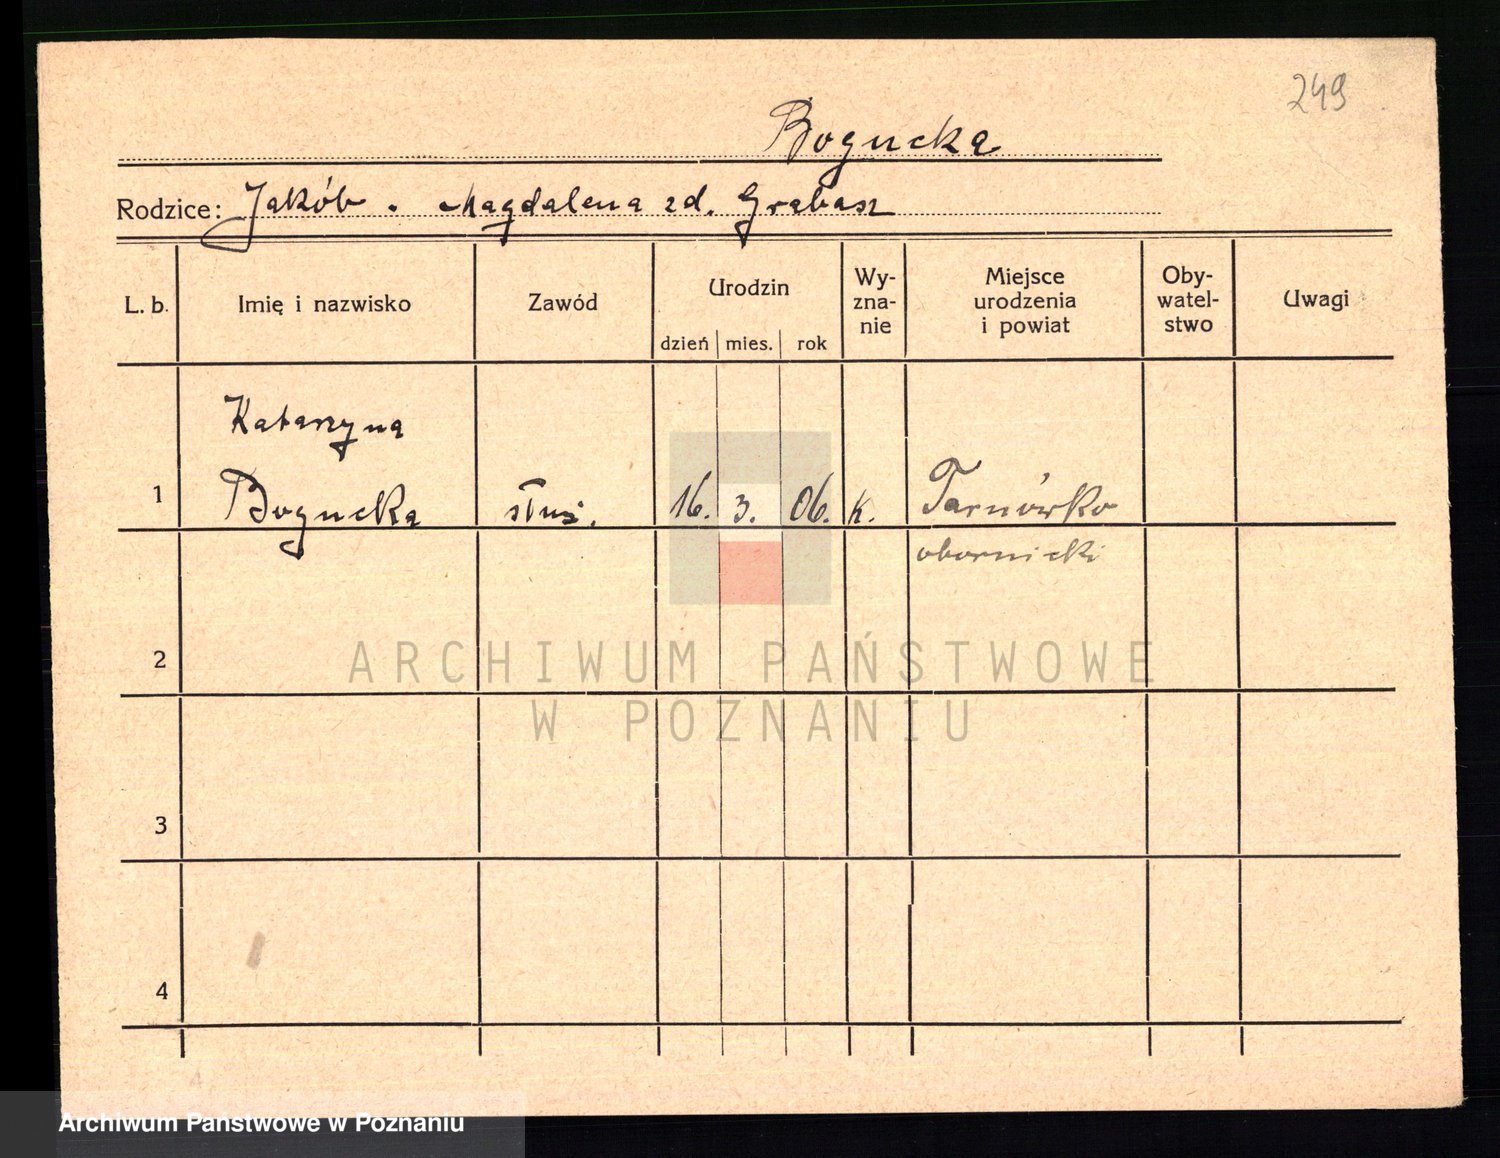 249
Bogucka
Rodzice: Jakób . Magdalena zd. Grabasz
L. b.
Imię i nazwisko
Zawód
Urodzin
dzień mies. rok
Wy-
zna-
nie
Miejsce
urodzenia
i powiat
Oby-
watel-
stwo
Uwagi
Katarzyna
1 Bogucka służ. 16. 3. 06. k. Tarnówko
obornicki
2
3
4
ARCHIWUM PAŃSTWOWE
W POZNANIU
Archiwum Państwowe w Poznaniu